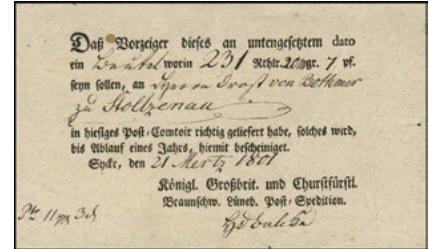 Daß Vorzeiger dieses an untengesetztem dato
ein Beutel worin 231 Rthlr. 20 mgr. 7 pf.
seyn sollen, an Herrn Drost von Bothmer
zu Stoltzenau
in hiesiges Post-Comtoir richtig geliefert habe, solches wird,
bis Ablauf eines Jahrs, hiemit bescheiniget.
Syke, den 21 Mertz 1801
Königl. Großbrit. und Churfürstl.
Braunschw. Lüneb. Post-Spedition.